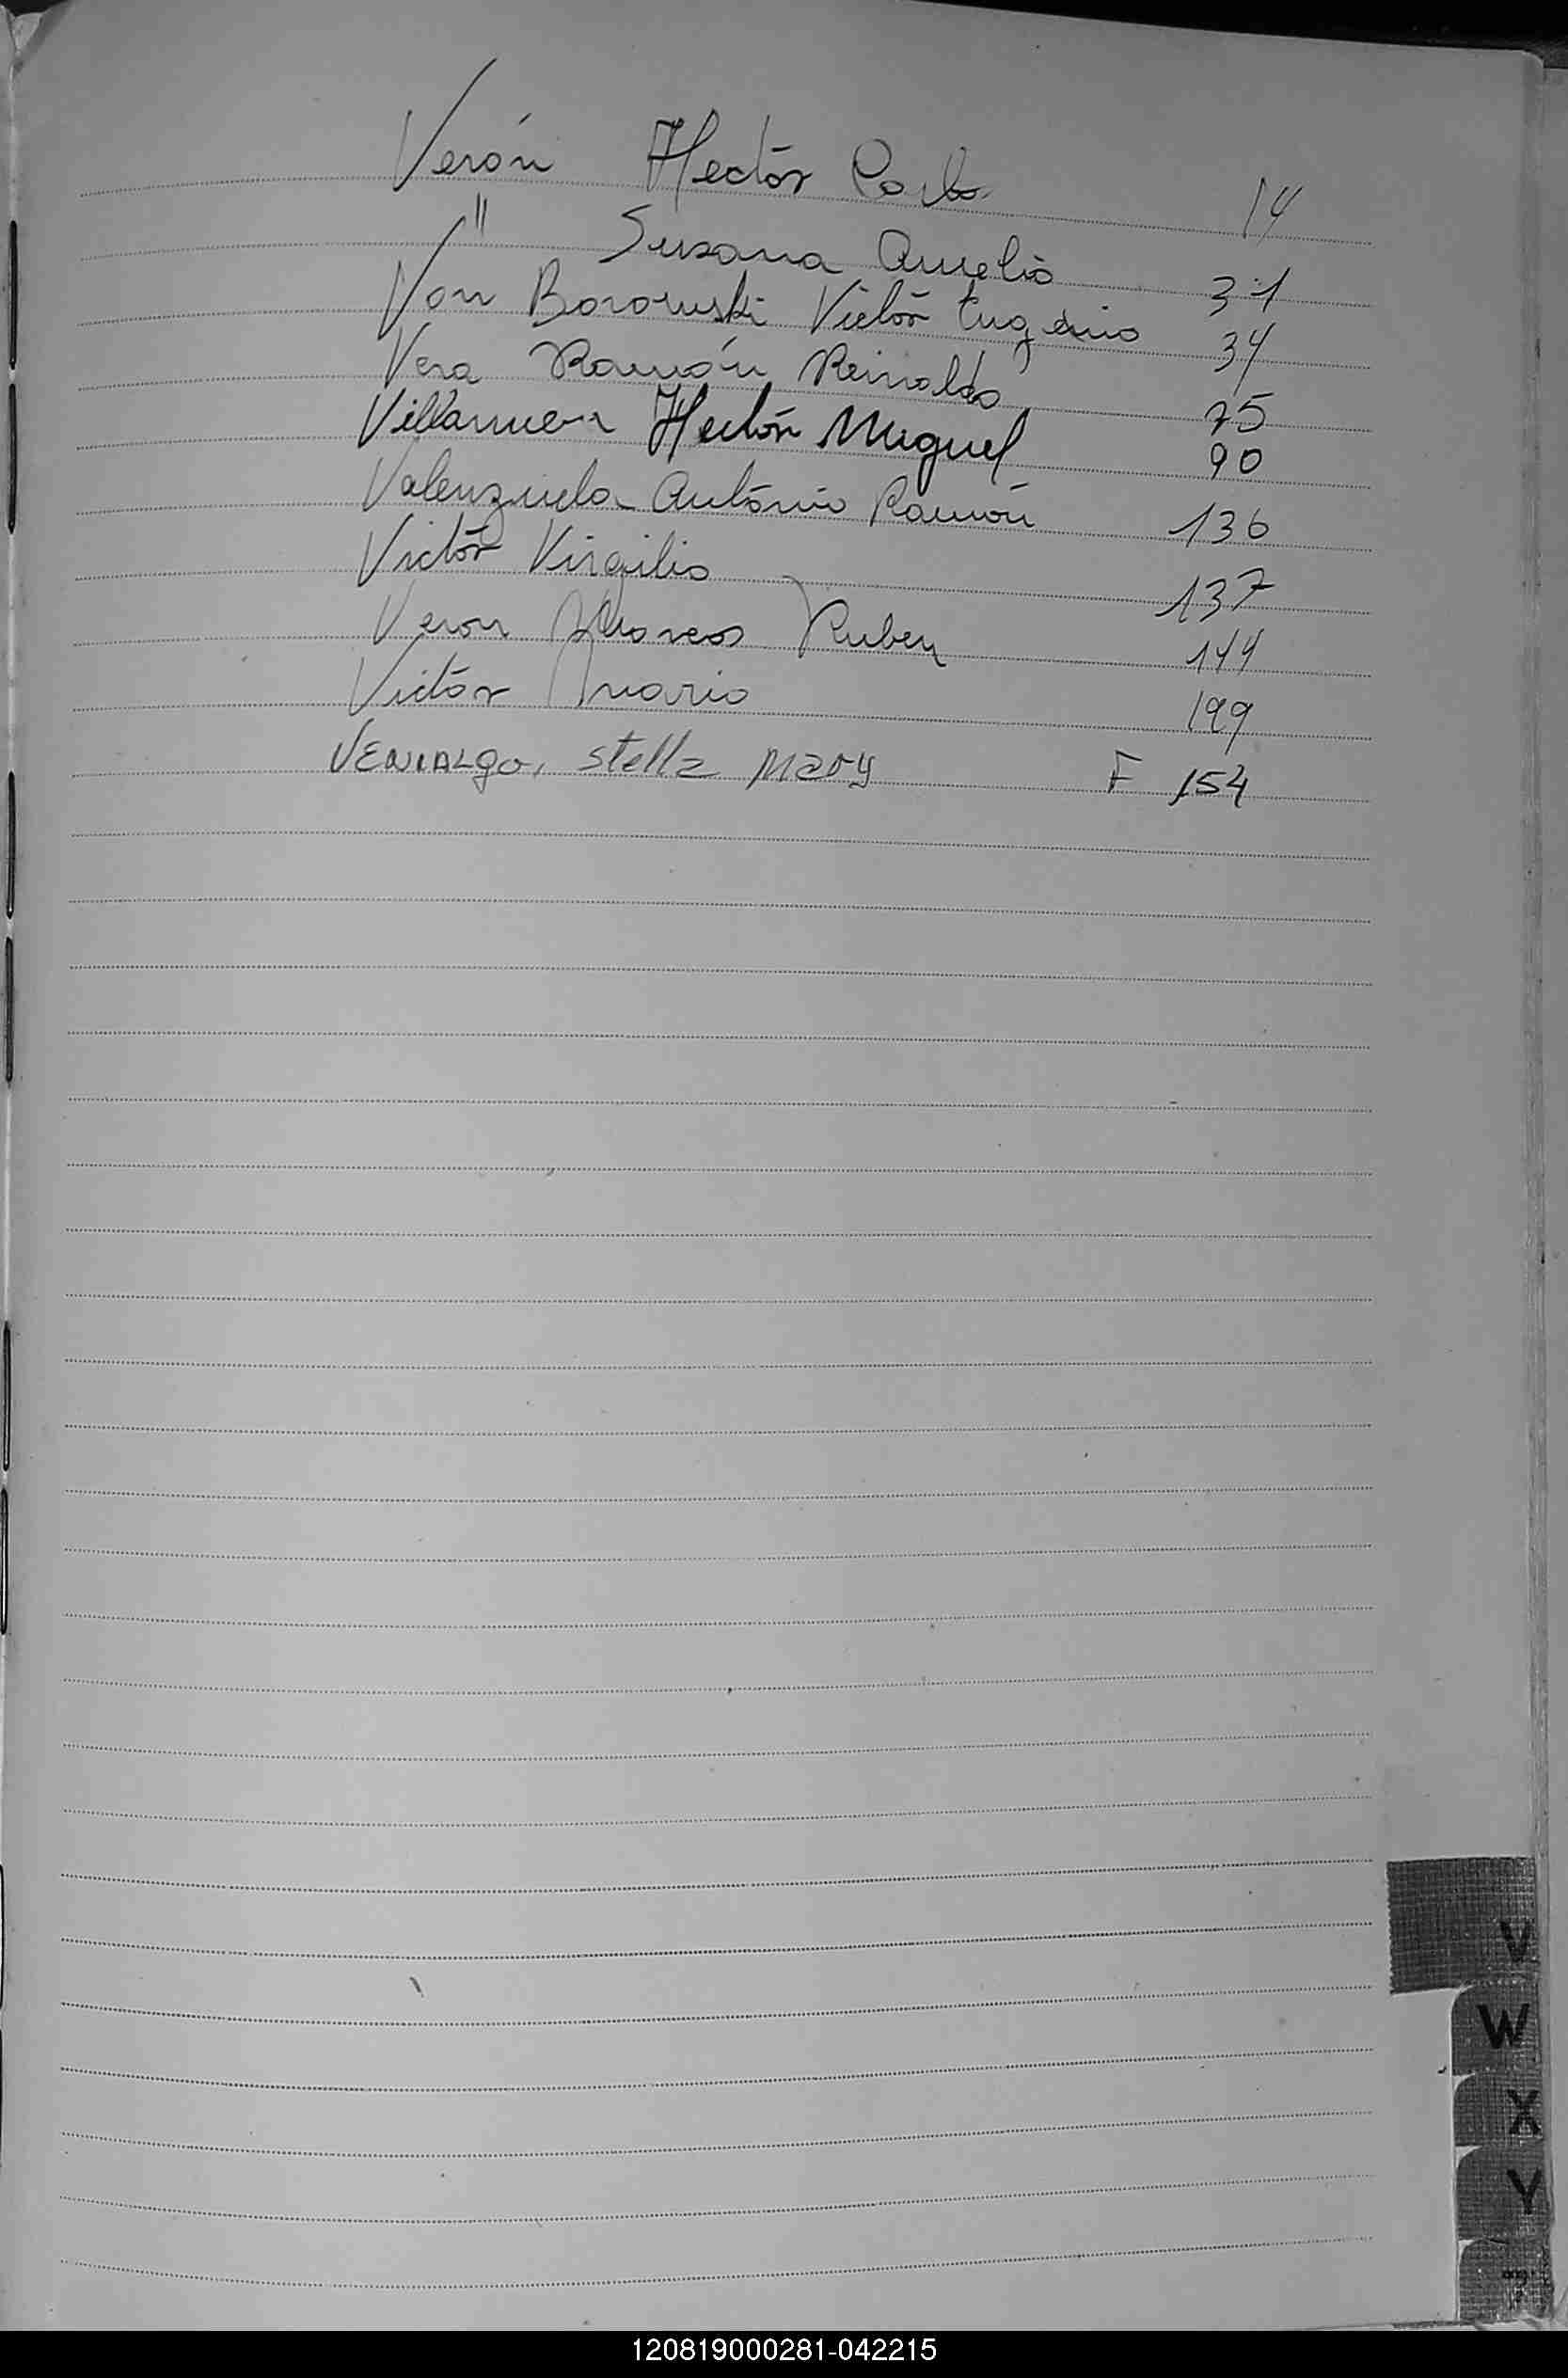 Verón Hector Carlos 14
" Susana Amelia 31
Von Borowski Victor Eugenio 34
Vera Ramón Reinaldo 75
Villanueva Hector Miguel 90
Valenzuela Antonio Ramón 136
Victor Virgilio 137
Veron Marcos Ruben 144
Victor Mario 199
VENIALGO, Stella Mary F 154
V
W
X
Y
120819000281-042215